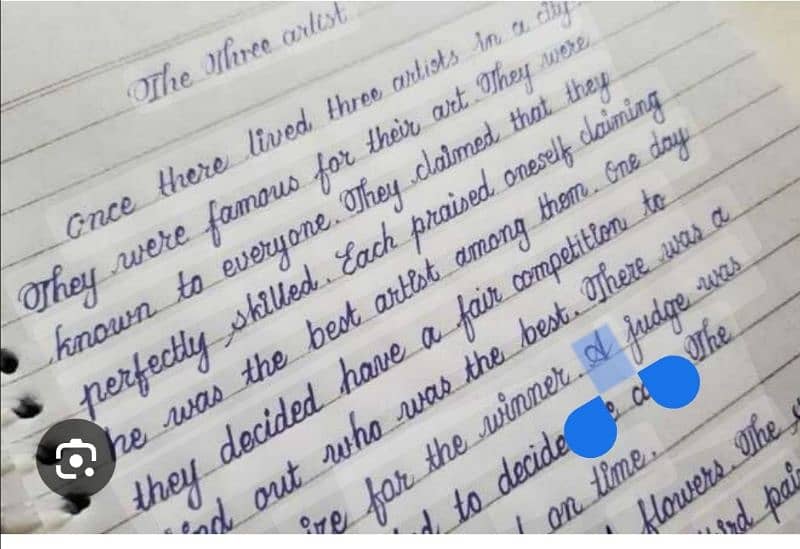 The Three artist
Once there lived three artists in a city.
They were famous for their art. They were
known to everyone. They claimed that they
perfectly skilled. Each praised oneself claiming
he was the best artist among them. One day
they decided have a fair competition to
out who was the best. There was a
for the winner. A judge was
to decide The
on time.
flowers. The